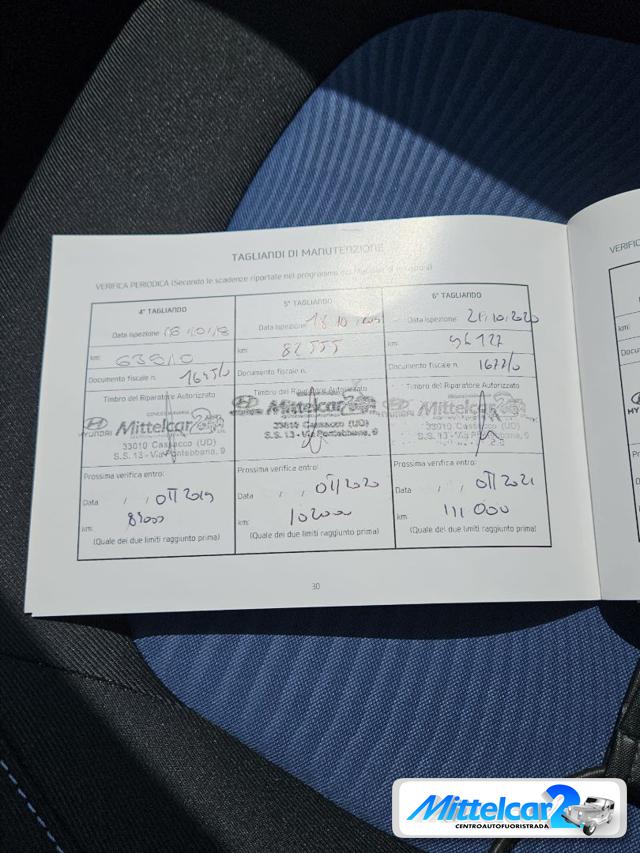 TAGLIANDI DI MANUTENZIONE
VERIFICA PERIODICA (Secondo le scadenze riportate nel programma
VERIFIC
4° TAGLIANDO
Data ispezione: 18/10/18
km:
Documento fiscale n.
Timbro del Riparatore Autorizzato
HYUNDAI Mittelcar2
33010 Cassacco (UD)
S.S. 13 - Via Pontebbana, 9
Prossima verifica entro:
Data , , OTT 2019
km:
(Quale dei due limiti raggiunto prima)
5° TAGLIANDO
Data ispezione: 18 10
km: 82555
Documento fiscale n.
Timbro del Riparatore Autorizzato
Mittelcar2
33010 Cassacco (UD)
S.S. 13 - Via Pontebbana, 9
Prossima verifica entro:
Data , , OTT/2020
km:
(Quale dei due limiti raggiunto prima)
6° TAGLIANDO
Data ispezione: 21/10/2020
km: 96127
Documento fiscale n. 1677/0
Timbro del Riparatore Autorizzato
Mittelcar2
33010 Cassacco (UD)
S.S. 13 - Via Pontebbana, 9
Prossima verifica entro:
Data , , OTT 2021
km: 111 000
(Quale dei due limiti raggiunto prima)
30
Mittelcar2
CENTROAUTOFUORISTRADA